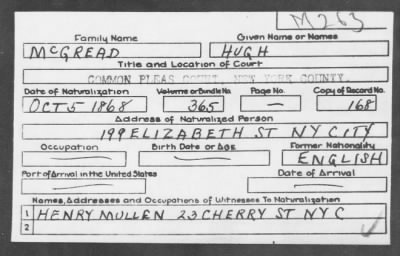 M263
Family Name Given Name or Names
McGREAD HUGH
Title and Location of Court
COMMON PLEAS COURT, NEW YORK COUNTY.
Date of Naturalization Volume or Bundle No. Page No. Copy of Record No.
OCT 5 1868 365 — 168
Address of Naturalized Person
199 ELIZABETH ST NY CITY
Occupation Birth Date or Age Former Nationality
ENGLISH
Port of Arrival in the United States Date of Arrival
Names, Addresses and Occupations of Witnesses To Naturalization
1 HENRY MULLEN 23 CHERRY ST NYC
2